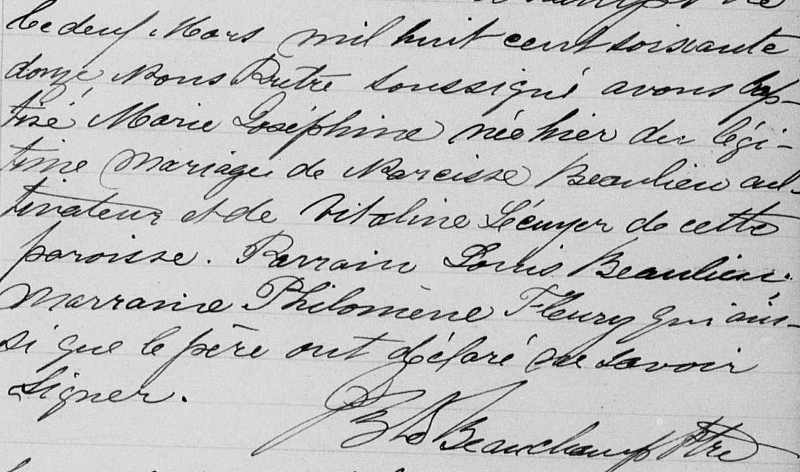 Le deuf Mars mil huit cent soixante
donze Nous Prêtre soussigné avons bap-
tisé Marie Joséphine née hier du légi-
time mariage de Narcisse Beaulieu cul-
tivateur et de Vitaline Lécuyer de cette
paroisse. Parrain Louis Beaulieu.
Marraine Philomène Fleury qui ain-
si que le père ont déclaré ne savoir
signer.
Beauchamp Ptre